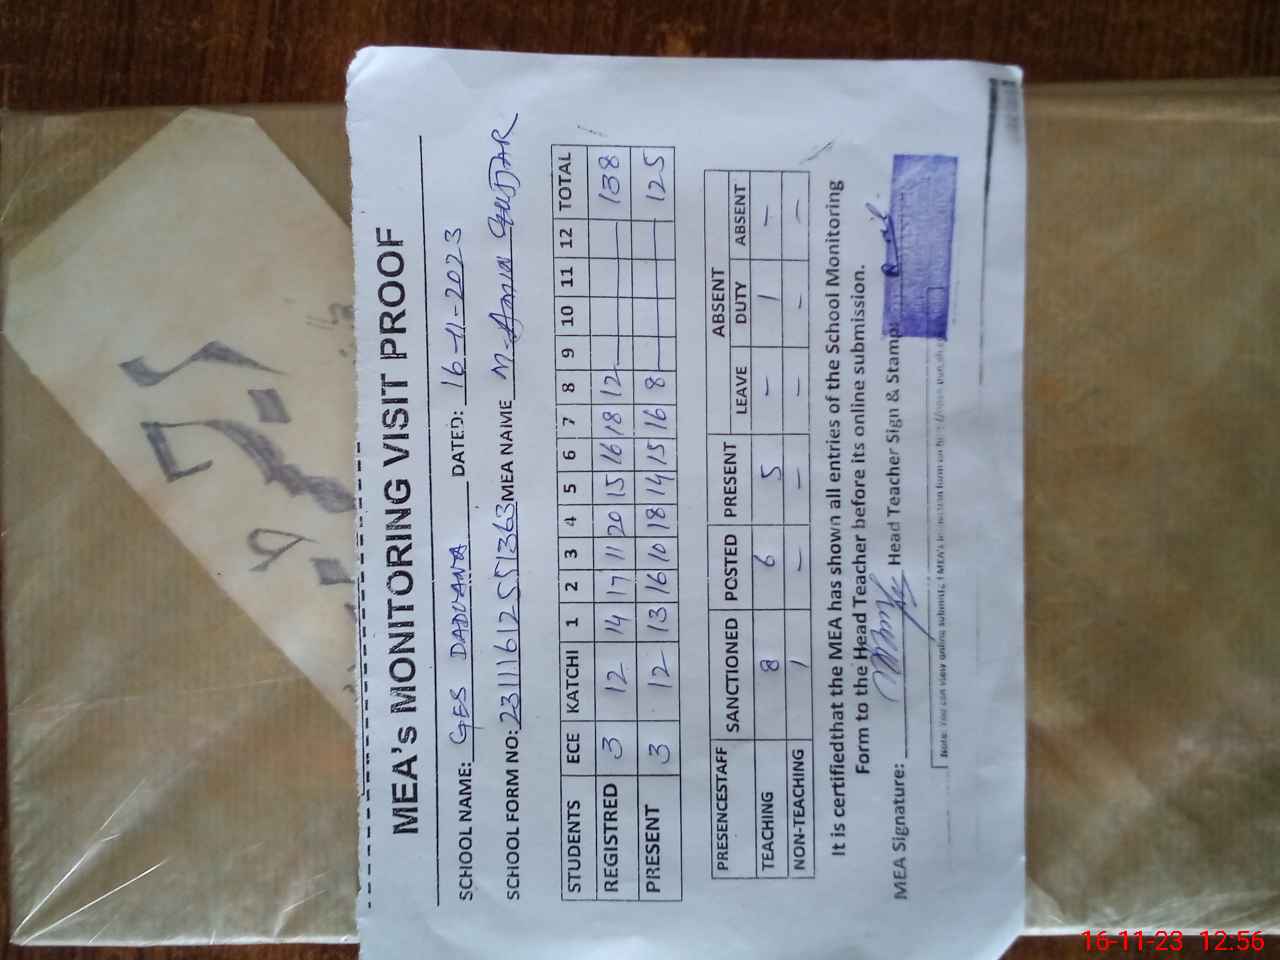 MEA's MONITORING VISIT PROOF
SCHOOL NAME: GES DADUANA DATED: 16-11-2023
SCHOOL FORM NO: 231116125551363 MEA NAME M. Amin GUJJAR
STUDENTS ECE KATCHI 1 2 3 4 5 6 7 8 9 10 11 12 TOTAL
REGISTRED 3 12 14 17 11 20 15 16 18 12 — — — — 138
PRESENT 3 12 13 16 10 18 14 15 16 8 — — — — 125
PRESENCESTAFF SANCTIONED POSTED PRESENT ABSENT
LEAVE DUTY ABSENT
TEACHING 8 6 5 - 1 -
NON-TEACHING 1 - - - - -
It is certifiedthat the MEA has shown all entries of the School Monitoring
Form to the Head Teacher before its online submission.
MEA Signature: Head Teacher Sign & Stamp
Note: You can view online
16-11-23 12:56